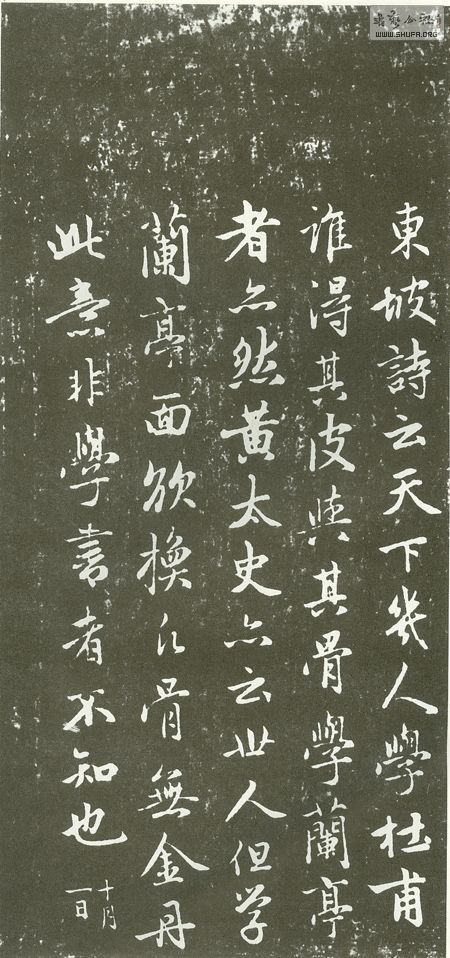 東坡詩云天下幾人學杜甫
誰得其皮與其骨學蘭亭
者亦然黃太史亦云世人但学
蘭亭面欲換凡骨無金丹
此意非學書者不知也
十月
一日
書藝公社
WWW.SHUFA.ORG